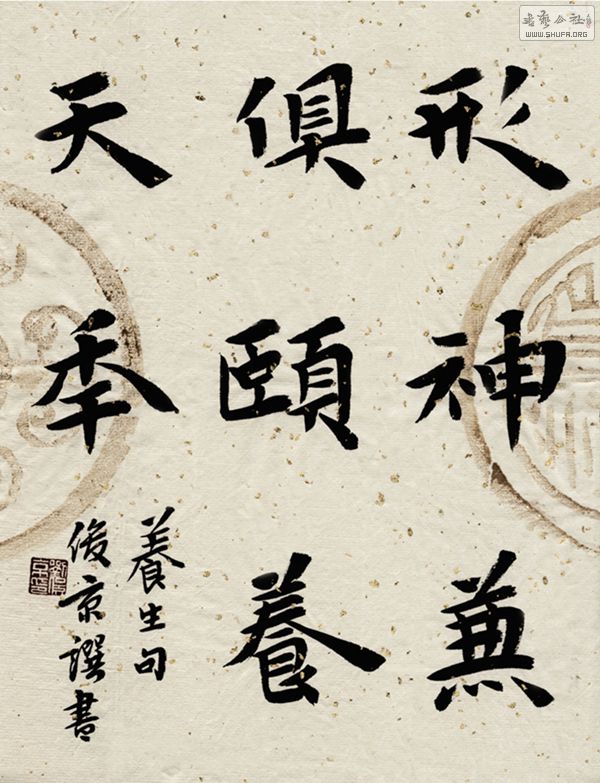 形神兼
俱頤養
天秊
養生句
俊京譔書
書藝公社
WWW.SHUFA.ORG